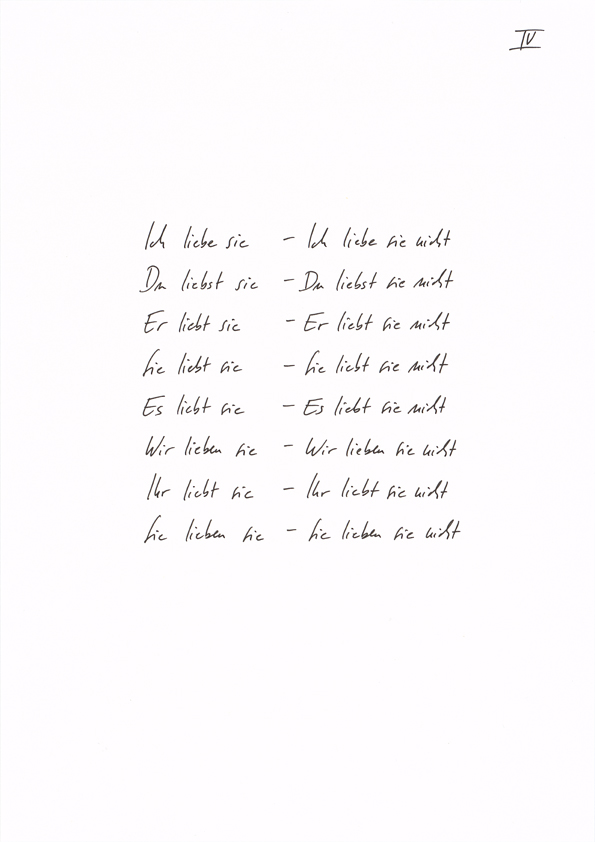 IV
Ich liebe sie – Ich liebe sie nicht
Du liebst sie – Du liebst sie nicht
Er liebt sie – Er liebt sie nicht
Sie liebt sie – Sie liebt sie nicht
Es liebt sie – Es liebt sie nicht
Wir lieben sie – Wir lieben sie nicht
Ihr liebt sie – Ihr liebt sie nicht
Sie lieben sie – Sie lieben sie nicht